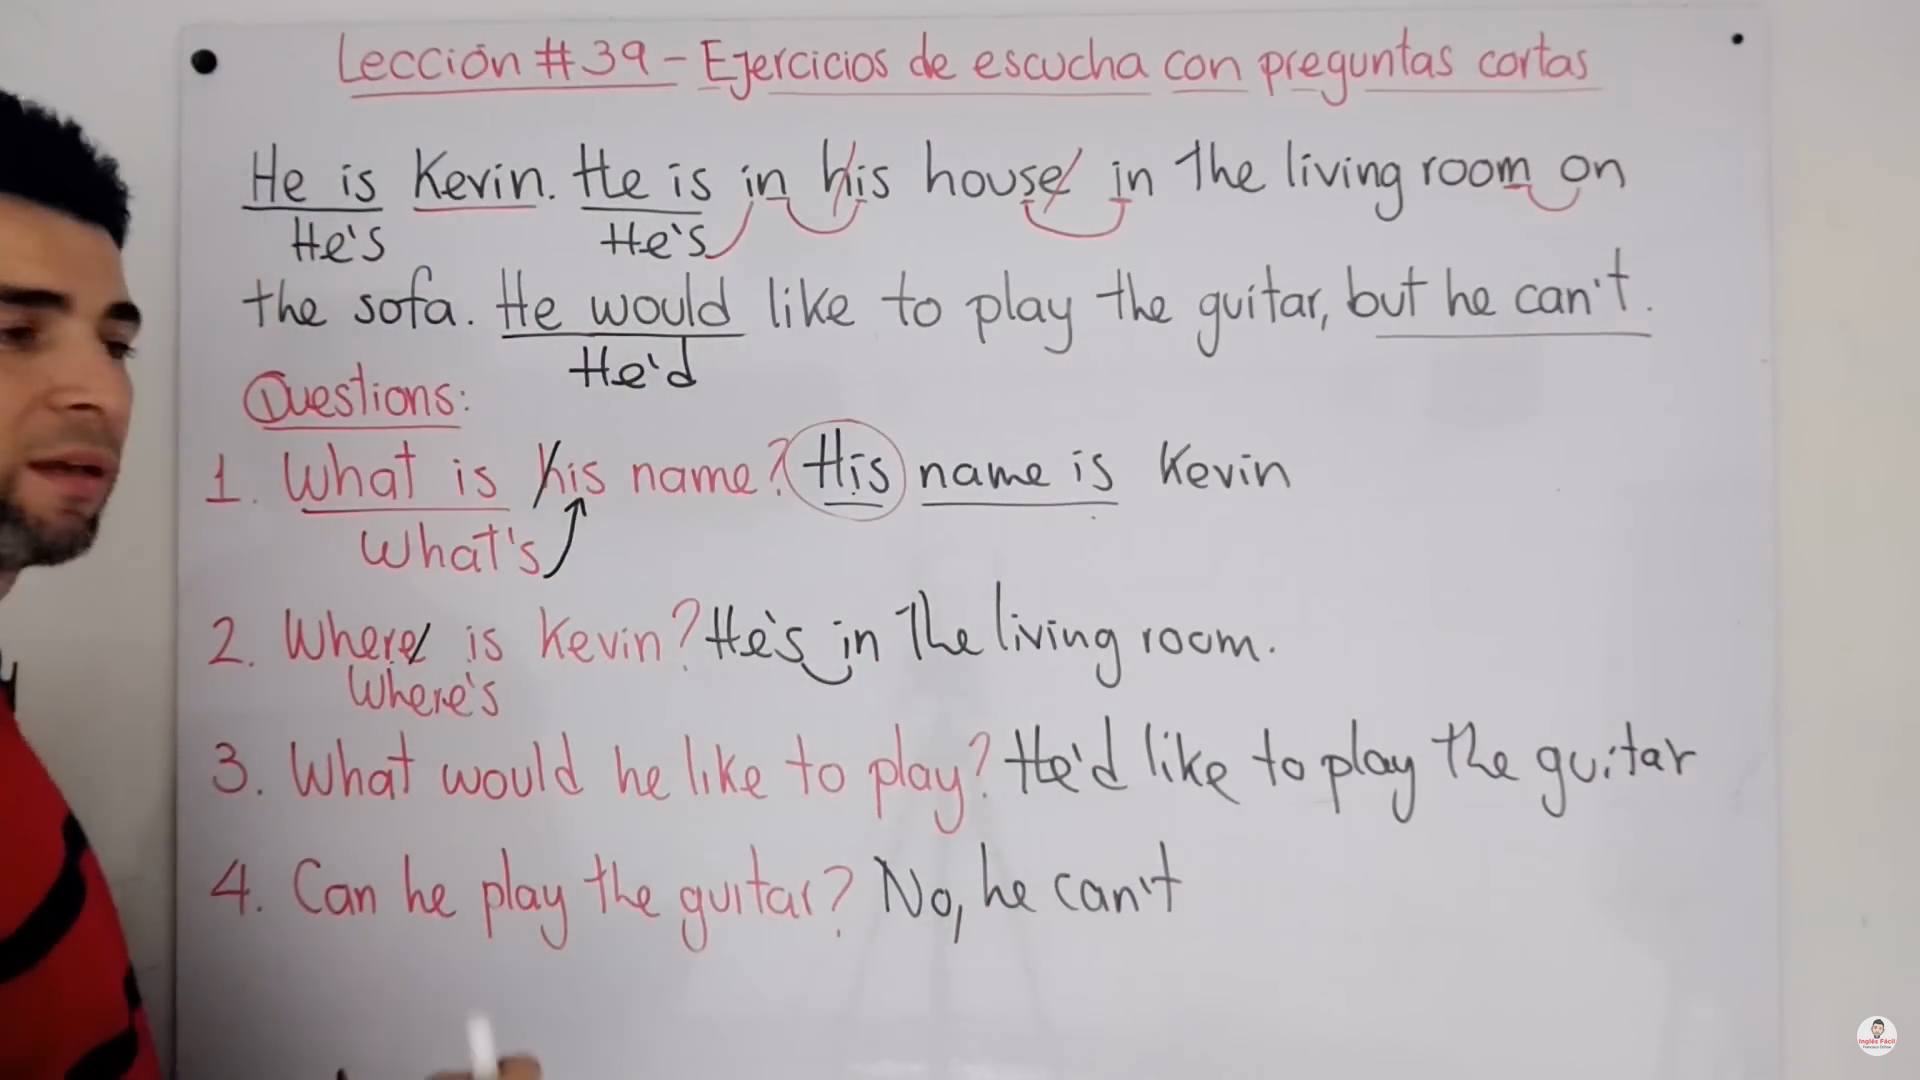 Lección #39 - Ejercicios de escucha con preguntas cortas
He is Kevin. He is in his house in the living room on
He's He's
the sofa. He would like to play the guitar, but he can't.
He'd
Questions:
1. What is his name? His name is Kevin
What's
2. Where is Kevin? He's in the living room.
Where's
3. What would he like to play? He'd like to play the guitar
4. Can he play the guitar? No, he can't
Inglés Fácil